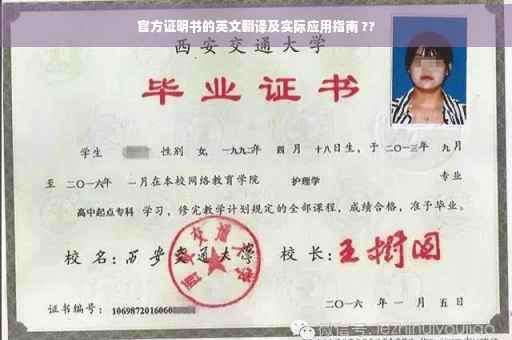 官方证明书的英文翻译及实际应用指南 ??
西安交通大学
毕业证书
学生 性别 女, 一九九二年 四 月 十八日生, 于 二〇一三年 九月
至 二〇一六年 一月在本校网络教育学院 护理学 专业
高中起点专科 学习, 修完教学计划规定的全部课程, 成绩合格, 准予毕业。
校 名: 西安交通大学 校 长: 王树国
证书编号: 1069872016060
二〇一六 年 一 月 五 日
微信号: jezhihuiyoujiao